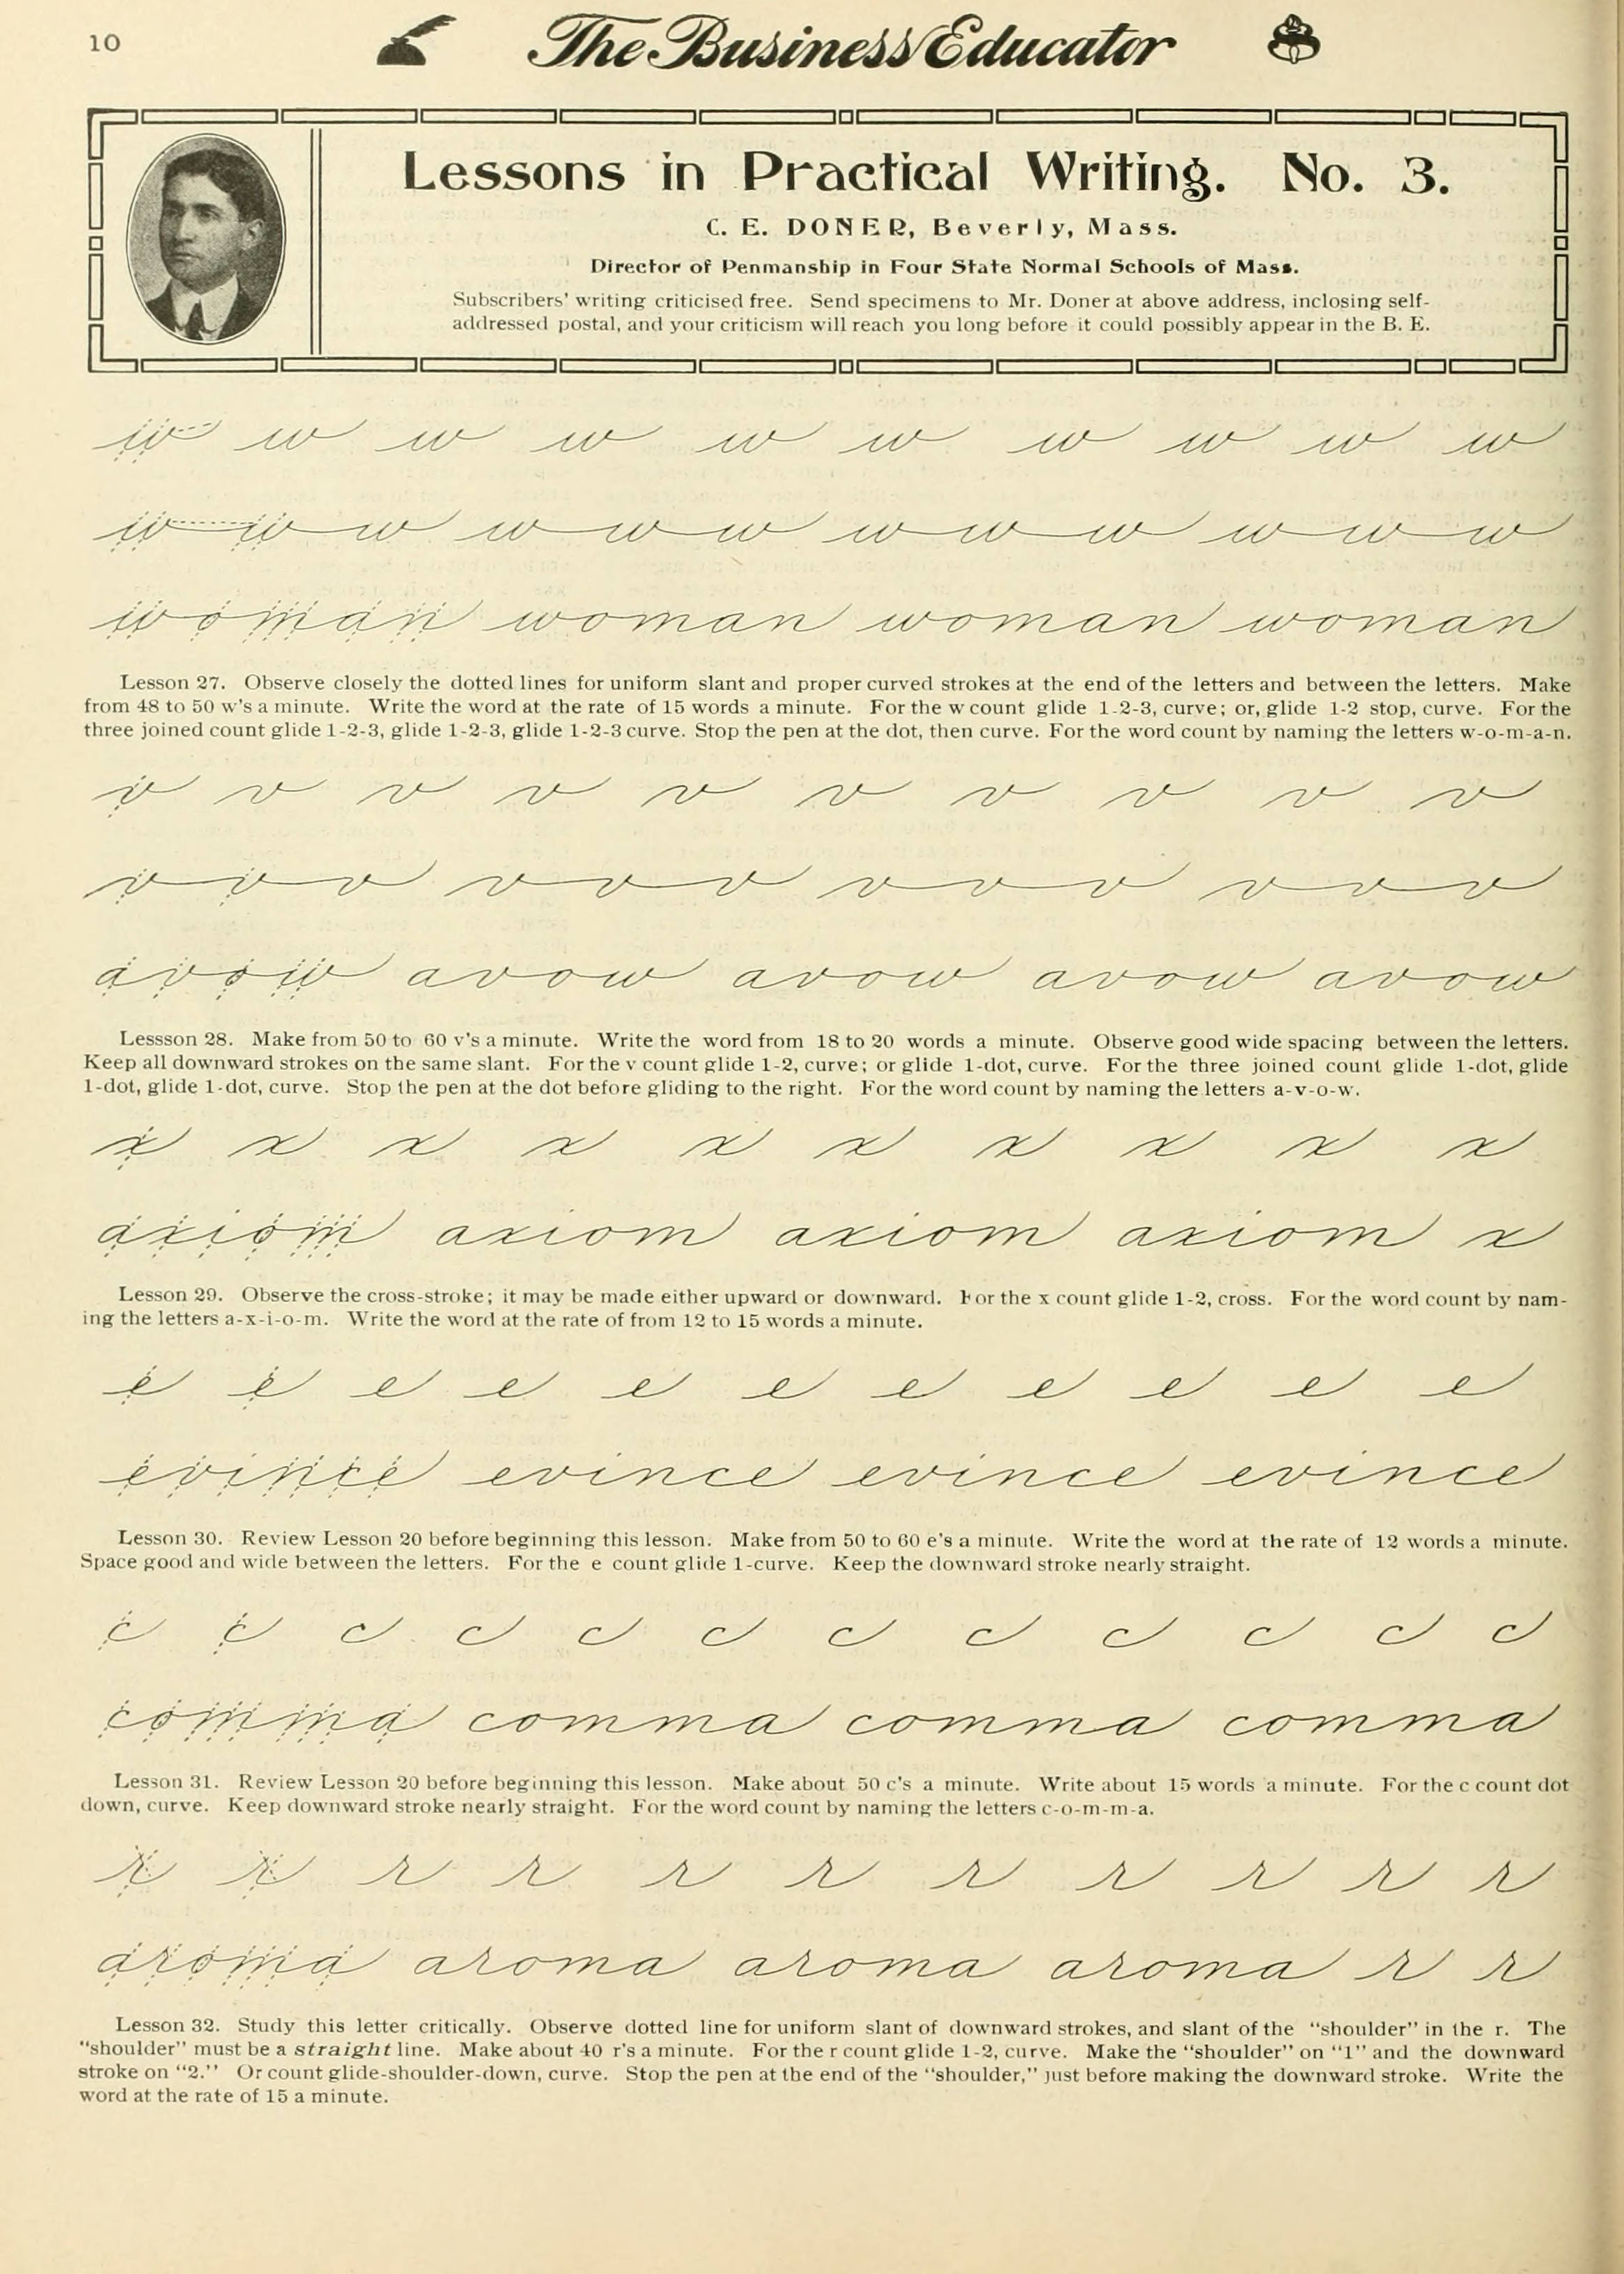 10
The Business Educator
Lessons in Practical Writing. No. 3.
C. E. DONER, Beverly, Mass.
Director of Penmanship in Four State Normal Schools of Mass.
Subscribers' writing criticised free. Send specimens to Mr. Doner at above address, inclosing self-
addressed postal, and your criticism will reach you long before it could possibly appear in the B. E.
w w w w w w w w w w
w w w w w w w w w w w w
woman woman woman woman
Lesson 27. Observe closely the dotted lines for uniform slant and proper curved strokes at the end of the letters and between the letters. Make
from 48 to 50 w's a minute. Write the word at the rate of 15 words a minute. For the w count glide 1-2-3, curve; or, glide 1-2 stop, curve. For the
three joined count glide 1-2-3, glide 1-2-3, glide 1-2-3 curve. Stop the pen at the dot, then curve. For the word count by naming the letters w-o-m-a-n.
v v v v v v v v v v
v v v v v v v v v v v v
avow avow avow avow avow
Lessson 28. Make from 50 to 60 v's a minute. Write the word from 18 to 20 words a minute. Observe good wide spacing between the letters.
Keep all downward strokes on the same slant. For the v count glide 1-2, curve; or glide 1-dot, curve. For the three joined count glide 1-dot, glide
1-dot, glide 1-dot, curve. Stop the pen at the dot before gliding to the right. For the word count by naming the letters a-v-o-w.
x x x x x x x x x x
axiom axiom axiom axiom x
Lesson 29. Observe the cross-stroke; it may be made either upward or downward. For the x count glide 1-2, cross. For the word count by nam-
ing the letters a-x-i-o-m. Write the word at the rate of from 12 to 15 words a minute.
e e e e e e e e e e e
evince evince evince evince
Lesson 30. Review Lesson 20 before beginning this lesson. Make from 50 to 60 e's a minute. Write the word at the rate of 12 words a minute.
Space good and wide between the letters. For the e count glide 1-curve. Keep the downward stroke nearly straight.
c c c c c c c c c c c c
comma comma comma comma
Lesson 31. Review Lesson 20 before beginning this lesson. Make about 50 c's a minute. Write about 15 words a minute. For the c count dot
down, curve. Keep downward stroke nearly straight. For the word count by naming the letters c-o-m-m-a.
r r r r r r r r r r r
aroma aroma aroma aroma r r
Lesson 32. Study this letter critically. Observe dotted line for uniform slant of downward strokes, and slant of the "shoulder" in the r. The
"shoulder" must be a straight line. Make about 40 r's a minute. For the r count glide 1-2, curve. Make the "shoulder" on "1" and the downward
stroke on "2." Or count glide-shoulder-down, curve. Stop the pen at the end of the "shoulder," just before making the downward stroke. Write the
word at the rate of 15 a minute.